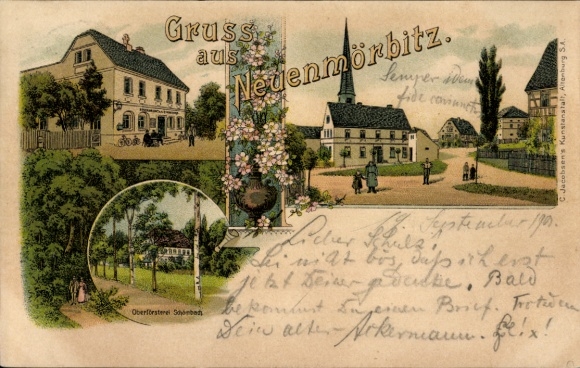 Gruss
aus
Neuenmörbitz.
Semper idem
fide
Oberförsterei
C. Jacobsen's Kunstanstalt, Altenburg S.A.
September
Lieber Schulz!
Sei nicht bös, daß ich erst
jetzt Deiner gedenke. Bald
bekommst Du einen Brief. Trotzdem
Dein alter Ackermann.